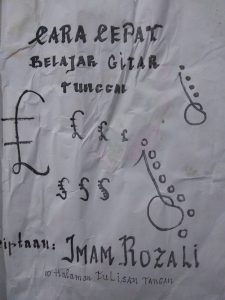 CARA CEPAT
BELAJAR GITAR
TUNGGAL
iptaan: IMAM ROZALI
10 Halaman Tulisan Tangan